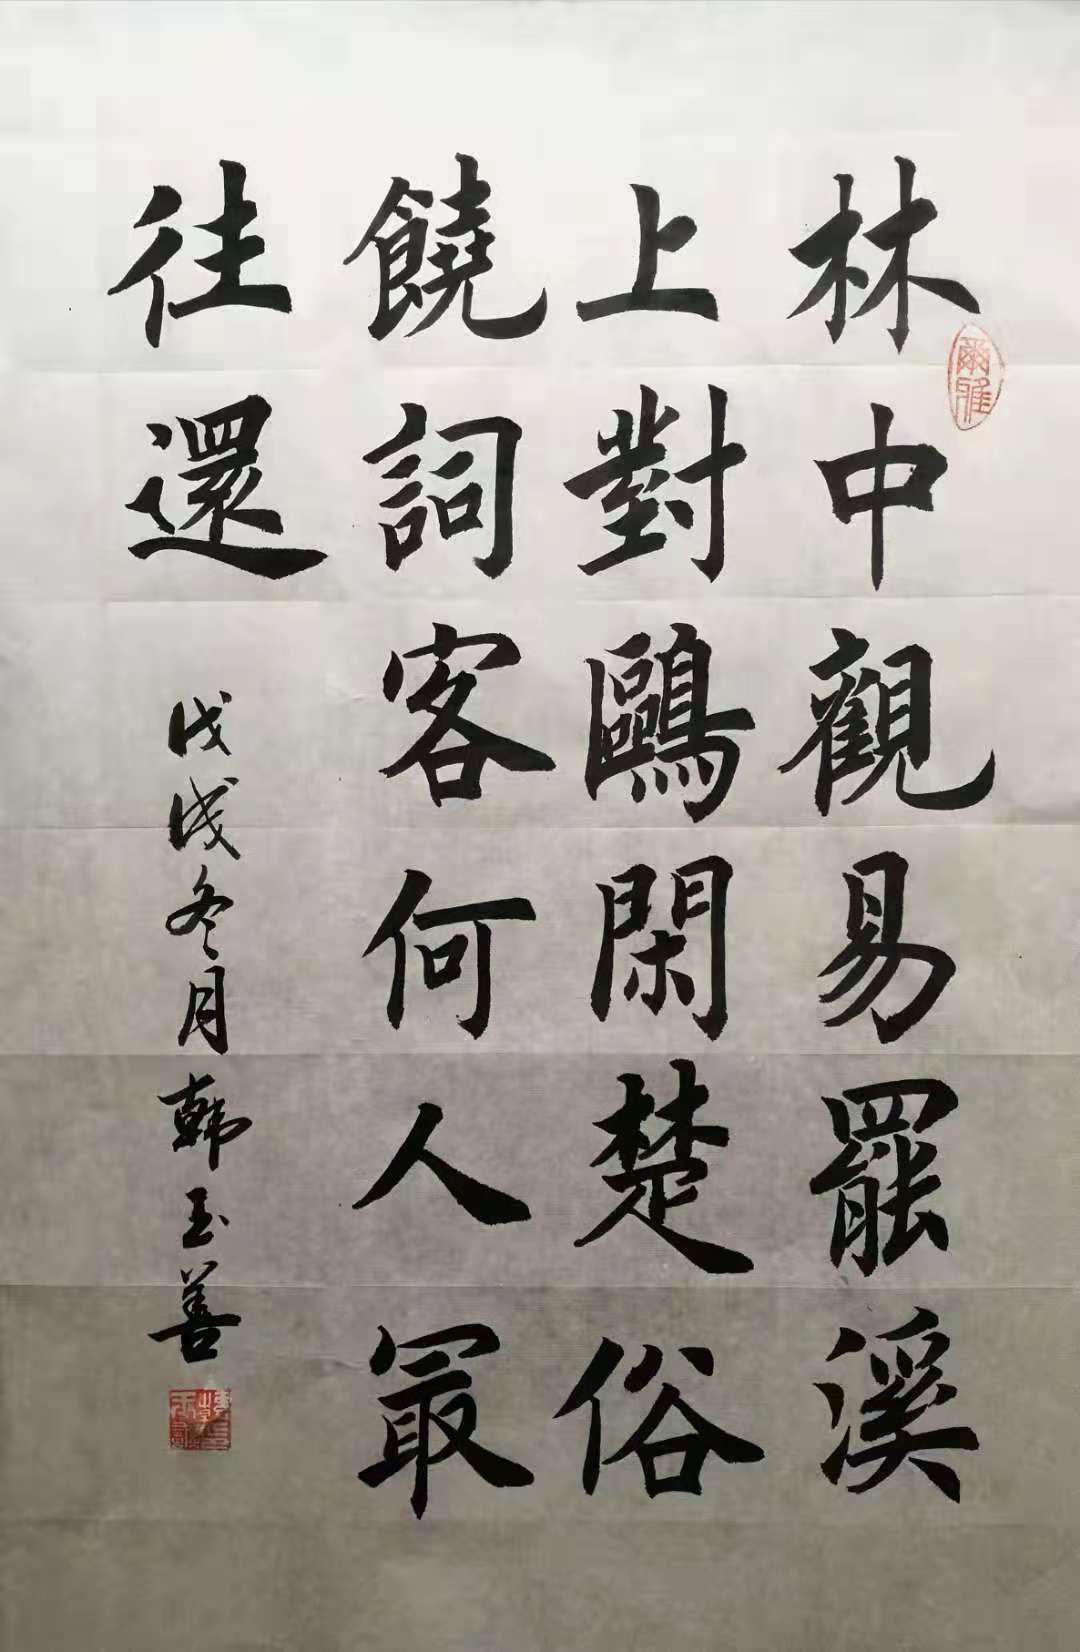 林中觀易罷溪
上對鷗閑楚俗
饒詞客何人冣
往還
戊戌冬月韩玉善
爾雅